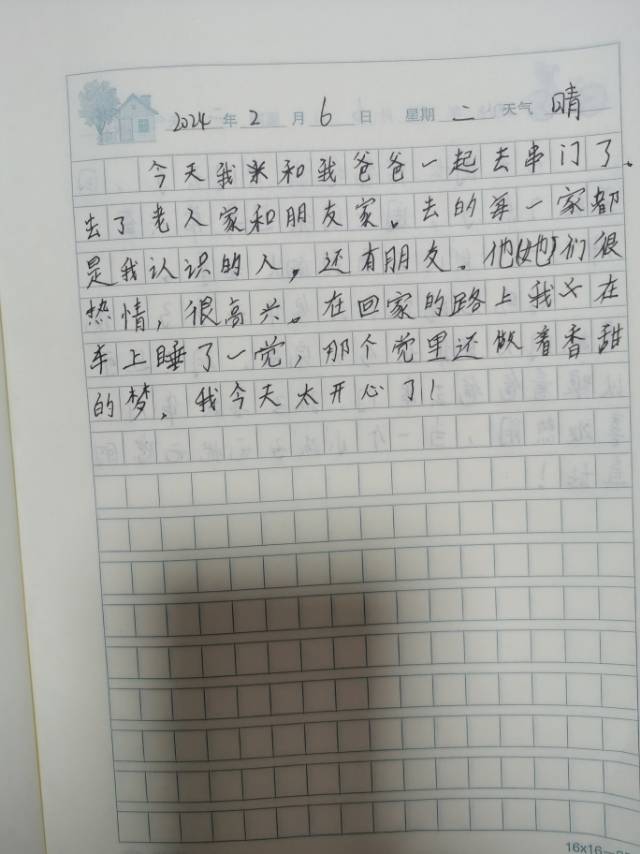 2024 年 2 月 6 日 星期 二 天气 晴
今天我和我爸爸一起去串门了.
去了老人家和朋友家。去的每一家都
是我认识的人，还有朋友．他(她)们很
热情，很高兴。在回家的路上我在
车上睡了一觉，那个觉里还做着香甜
的梦，我今天太开心了！
16×16